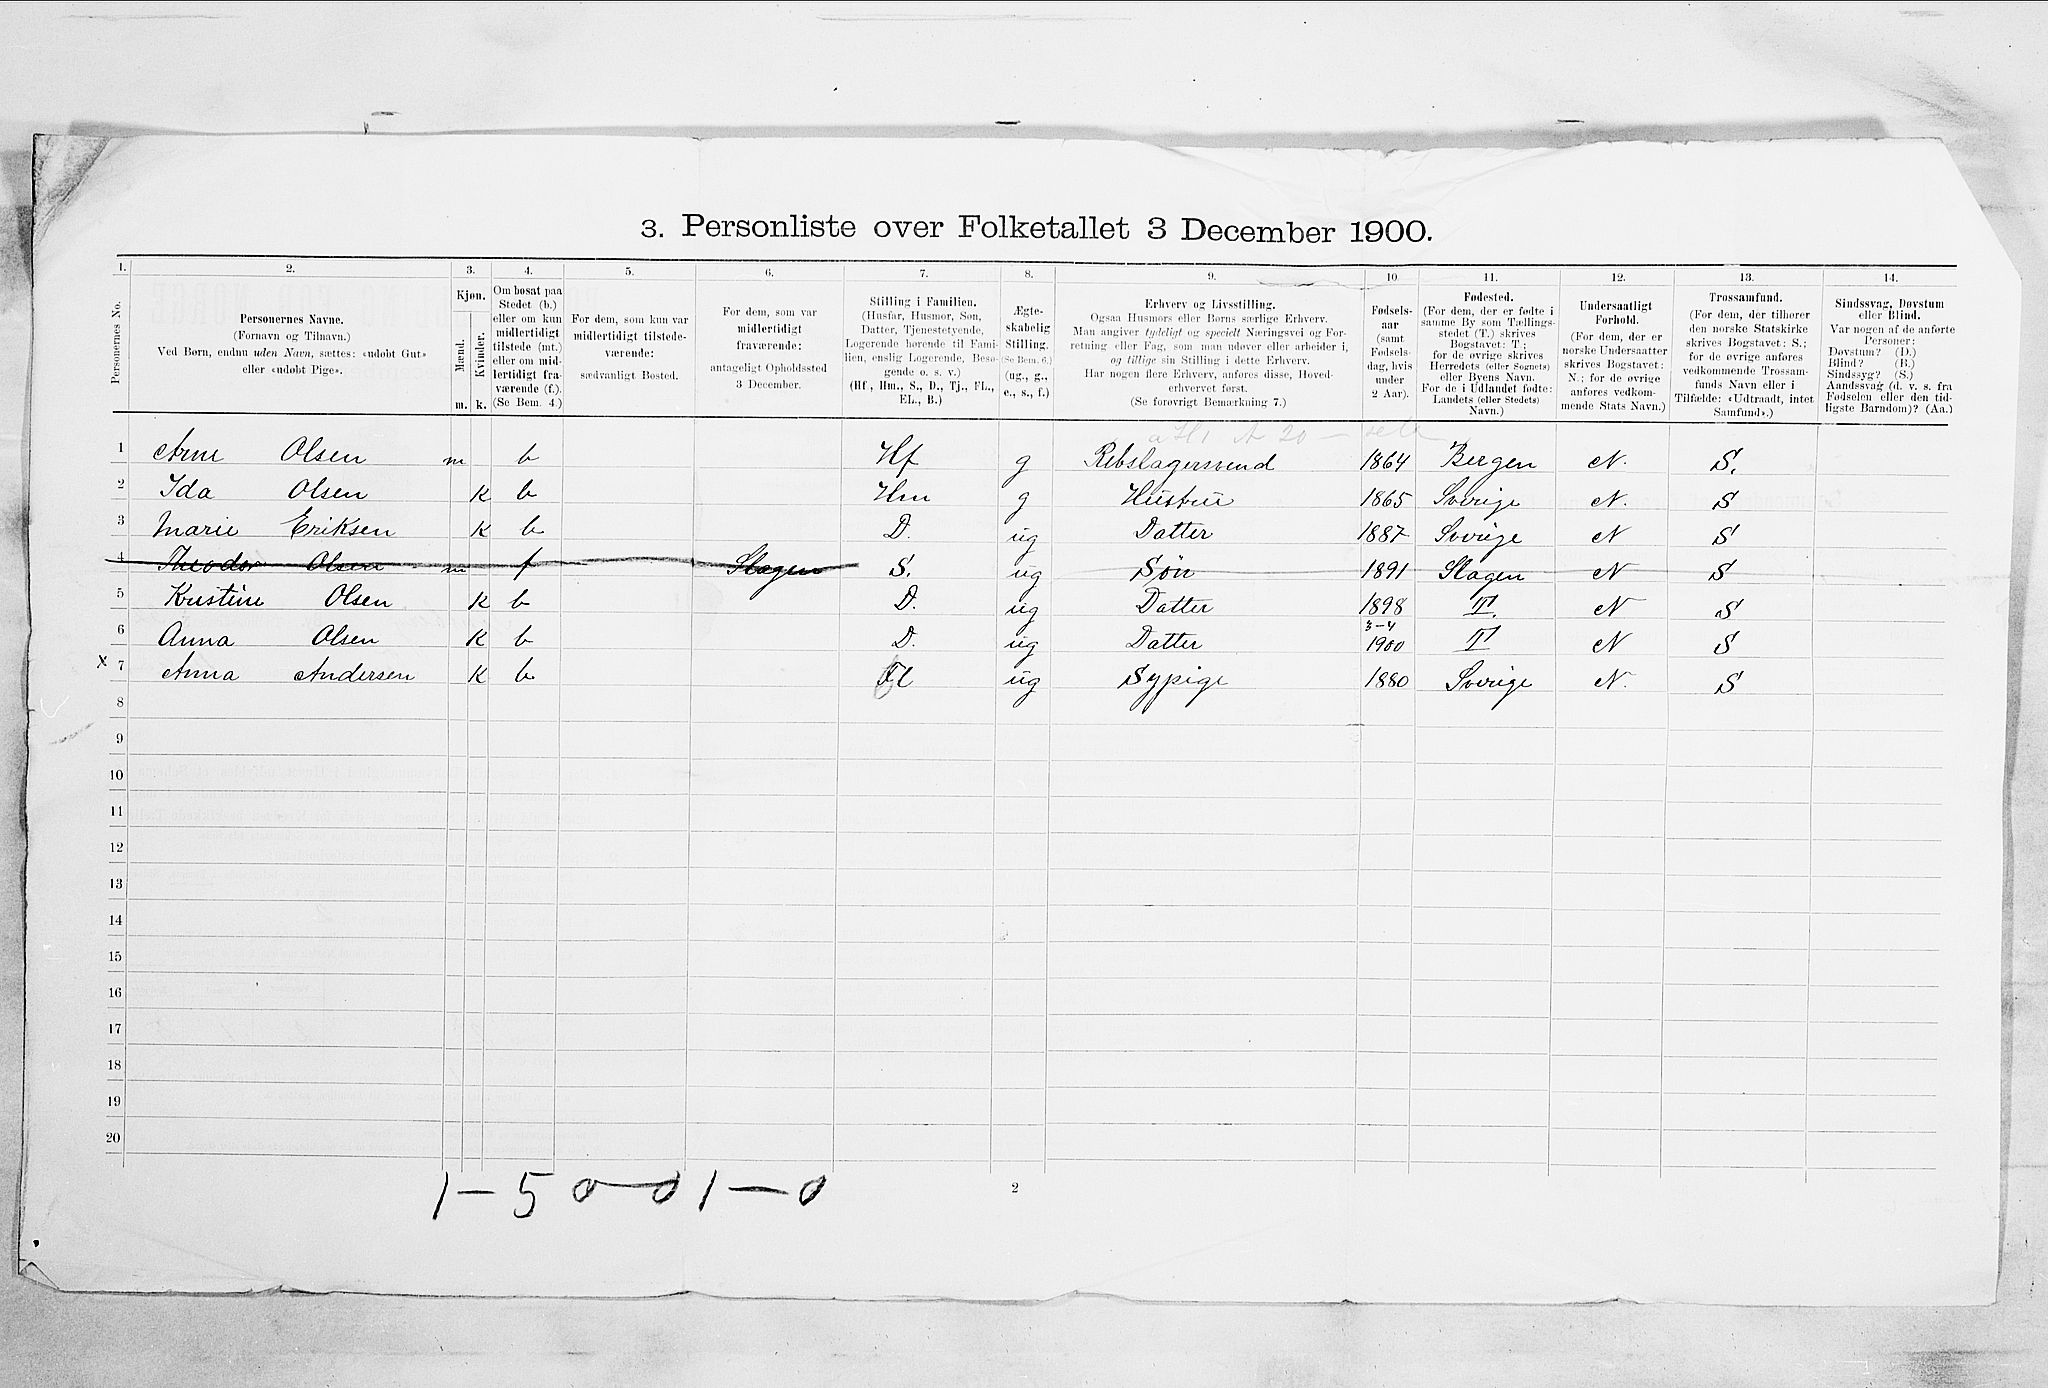 3. Personliste over Folketallet 3 December 1900.
1. 2. 3. 4. 5. 6. 7. 8. 9. 10 11. 12. 13. 14.
Personernes No.
Personernes Navne.
(Fornavn og Tilnavn.)
Ved Børn, endnu uden Navn, sættes: «udøbt Gut»
eller «udøbt Pige».
Kjøn.
Mænd.
Kvinder.
m. k.
Om bosat paa
Stedet (b.)
eller om kun
midlertidigt
tilstede (mt.)
eller om mid-
lertidigt fra-
værende (f.).
(Se Bem. 4.)
For dem, som kun var
midlertidigt tilstede-
værende:
sædvanligt Bosted.
For dem, som var
midlertidigt
fraværende:
antageligt Opholdssted
3 December.
Stilling i Familien.
(Husfar, Husmor, Søn,
Datter, Tjenestetyende,
Logerende hørende til Fami-
lien, enslig Logerende, Besø-
gende o. s. v.)
(Hf., Hm., S., D., Tj., FL.,
EL., B.)
Ægte-
skabelig
Stilling.
(Se Bem. 6.)
(ug., g.,
e., s., f.)
Erhverv og Livsstilling.
Ogsaa Husmors eller Børns særlige Erhverv.
Man angiver tydeligt og specielt Næringsvei og For-
retning eller Fag, som man udøver eller arbeider i,
og tillige sin Stilling i dette Erhverv.
Har nogen flere Erhverv, anføres disse, Hoved-
erhvervet først.
(Se forøvrigt Bemærkning 7.)
Fødsels-
aar
(samt
Fødsels-
dag, hvis
under
2 Aar).
Fødested.
(For dem, der er fødte i
samme By som Tællings-
stedet (T.) skrives
Bogstavet: T;
for de øvrige skrives
Herredets (eller Sognets)
eller Byens Navn.
For de i Udlandet fødte:
Landets (eller Stedets)
Navn.)
Undersaatligt
Forhold.
(For dem, der er
norske Undersaatter
skrives Bogstavet:
N.; for de øvrige
anføres vedkom-
mende Stats Navn.)
Trossamfund.
(For dem, der tilhører
den norske Statskirke
skrives Bogstavet: S.;
for de øvrige anføres
vedkommende Trossam-
funds Navn eller i
Tilfælde: «Udtraadt, intet
Samfund».)
Sindssvag, Døvstum
eller Blind.
Var nogen af de anførte
Personer:
Døvstum? (D.)
Blind? (B.)
Sindssyg? (S.)
Aandssvag (d. v. s. fra
Fødselen eller den tid-
ligste Barndom)? (Aa.)
1 Arne Olsen m b Hf g Rebslagersvend 1864 Bergen N. S.
2 Ida Olsen K b Hm g Hustru 1865 Sverige N. S
3 Marie Eriksen K b D. ug Datter 1887 Sverige N S
4 Theodor Olsen m f Slagen S. ug Søn 1891 Slagen N S
5 Kristine Olsen K b D. ug Datter 1898 T. N S
6 Anna Olsen K b D. ug Datter 3-4 1900 T N S
x 7 Anna Andersen K b Fl ug Sypige 1880 Sverige N. S
8
9
10
11
12
13
14
15
16
17
18
19
20
1 – 5 0 – 0 1 – 0
2